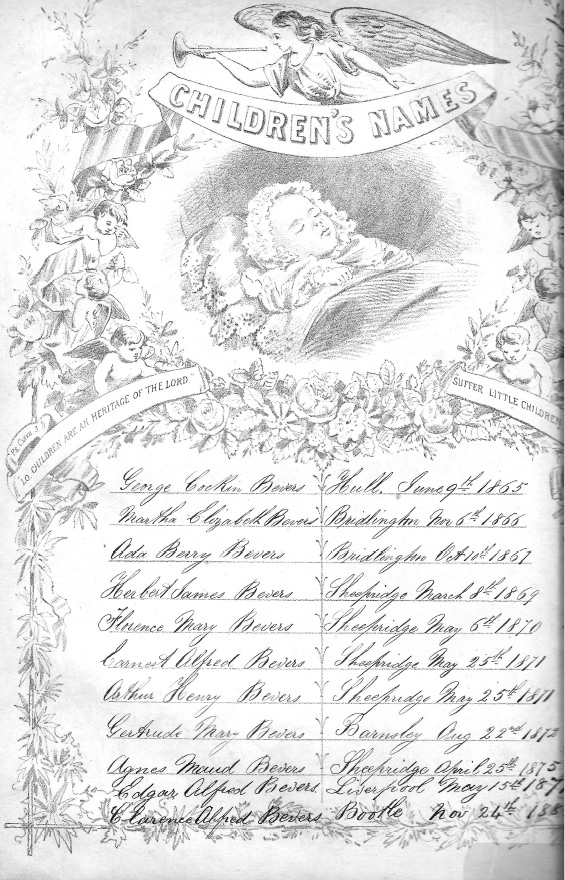 CHILDREN'S NAMES
LO, CHILDREN ARE AN HERITAGE OF THE LORD.
SUFFER LITTLE CHILDREN
George Cockin Bevers Hull. June 9th 1865
Martha Elizabeth Bevers Bridlington Nov 6th 1866
Ada Berry Bevers Bridlington Oct 10th 1867
Herbert James Bevers Sheepridge March 8th 1869
Florence Mary Bevers Sheepridge May 6th 1870
Earnest Alfred Bevers Sheepridge May 25th 1871
Arthur Henry Bevers Sheepridge May 25th 1871
Gertrude Mary Bevers Barnsley Aug 22nd 1872
Agnes Maud Bevers Sheepridge April 25th 1875
Edgar Alfred Bevers Liverpool May 15th 187
Clarence Alfred Bevers Bootle Nov 24th